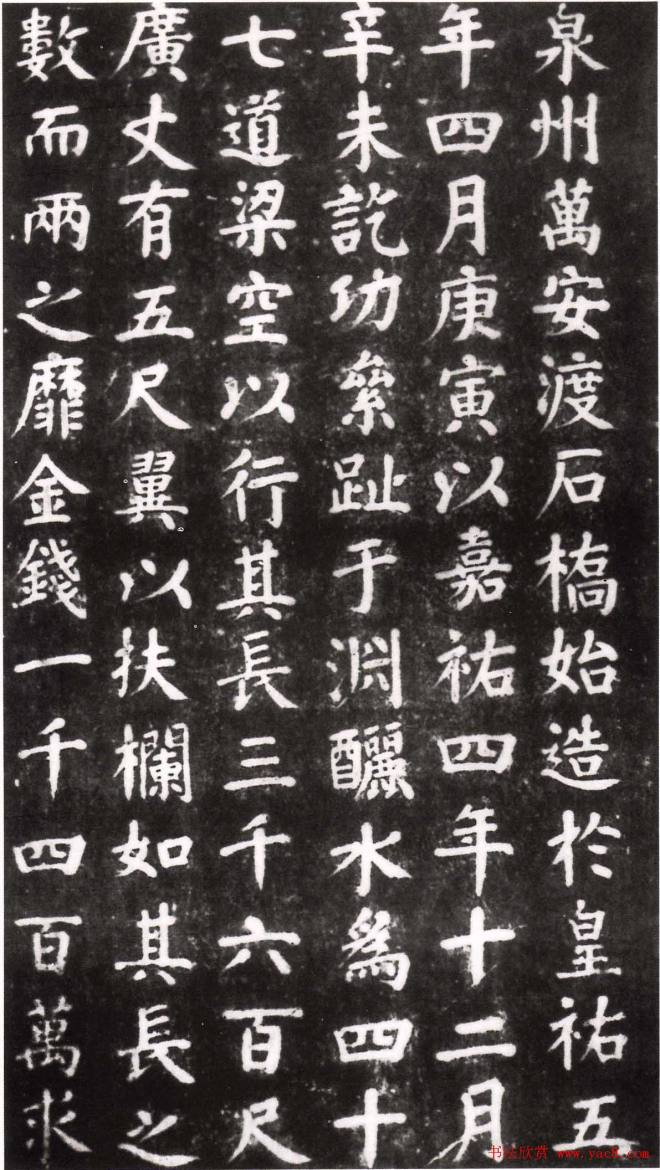 泉州萬安渡石橋始造於皇祐五
年四月庚寅以嘉祐四年十二月
辛未訖功絫趾于淵釃水爲四十
七道梁空以行其長三千六百尺
廣丈有五尺翼以扶欄如其長之
數而兩之靡金錢一千四百萬求
书法欣赏 www.yac8.com